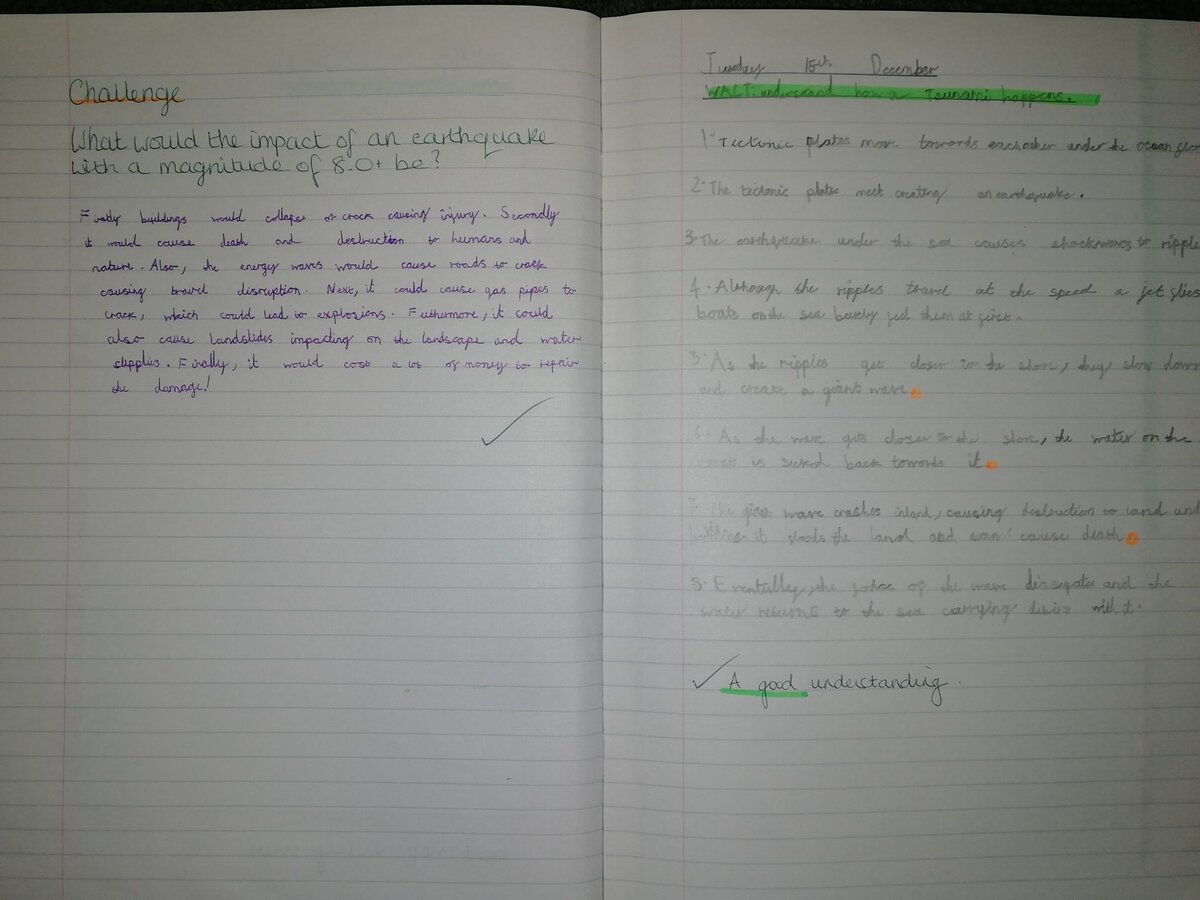 Challenge
What would the impact of an earthquake
with a magnitude of 8.0+ be?
Firstly buildings would collapse or crack causing injury. Secondly
it would cause death and destruction to humans and
nature. Also, the energy waves would cause roads to crack
causing travel disruption. Next, it could cause gas pipes to
crack, which could lead to explosions. Futhermore, it could
also cause landslides impacting on the landscape and water
supplies. Finally, it would cost a lot of money to repair
the damage!
Tuesday 15th December
WALT: understand how a Tsunami happens.
1. Tectonic plates move towards eachother under the ocean
2. The tectonic plates meet creating an earthquake.
3. The earthquake under the sea causes shockwaves to ripple
4. Although the ripples travel at the speed a jet
boats on the sea barely feel them at first.
5. As the ripples get closer to the shore, they slow down
and create a giant wave.
6. As the wave gets closer to the shore, the water on the
is back towards it.
7. The giant wave crashes inland, causing destruction to land and
it floods the land and can cause death.
8. the force of the wave and the
water returns to the sea carrying with it.
A good understanding.